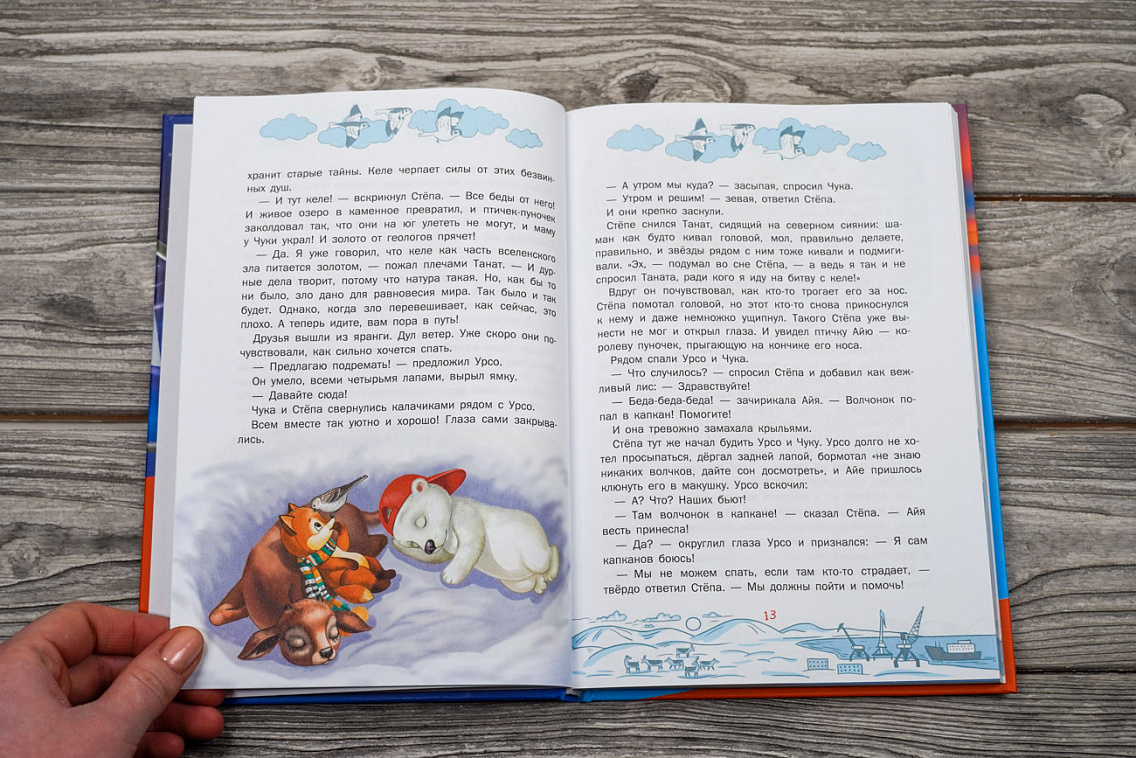 хранит старые тайны. Келе черпает силы от этих безвин-
ных душ.
— И тут келе! — вскрикнул Стёпа. — Все беды от него!
И живое озеро в каменное превратил, и птичек-пуночек
заколдовал так, что они на юг улететь не могут, и маму
у Чуки украл! И золото от геологов прячет!
— Да. Я уже говорил, что келе как часть вселенского
зла питается золотом, — пожал плечами Танат. — И дур-
ные дела творит, потому что натура такая. Но, как бы то
ни было, зло дано для равновесия мира. Так было и так
будет. Однако, когда зло перевешивает, как сейчас, это
плохо. А теперь идите, вам пора в путь!
Друзья вышли из яранги. Дул ветер. Уже скоро они по-
чувствовали, как сильно хочется спать.
— Предлагаю подремать! — предложил Урсо.
Он умело, всеми четырьмя лапами, вырыл ямку.
— Давайте сюда!
Чука и Стёпа свернулись калачиками рядом с Урсо.
Всем вместе так уютно и хорошо! Глаза сами закрыва-
лись.
— А утром мы куда? — засыпая, спросил Чука.
— Утром и решим! — зевая, ответил Стёпа.
И они крепко заснули.
Стёпе снился Танат, сидящий на северном сиянии: ша-
ман как будто кивал головой, мол, правильно делаете,
правильно, и звёзды рядом с ним тоже кивали и подмиги-
вали. «Эх, — подумал во сне Стёпа, — а ведь я так и не
спросил Таната, ради кого я иду на битву с келе!»
Вдруг он почувствовал, как кто-то трогает его за нос.
Стёпа помотал головой, но этот кто-то снова прикоснулся
к нему и даже немножко ущипнул. Такого Стёпа уже вы-
нести не мог и открыл глаза. И увидел птичку Айю — ко-
ролеву пуночек, прыгающую на кончике его носа.
Рядом спали Урсо и Чука.
— Что случилось? — спросил Стёпа и добавил как веж-
ливый лис: — Здравствуйте!
— Беда-беда-беда! — зачирикала Айя. — Волчонок по-
пал в капкан! Помогите!
И она тревожно замахала крыльями.
Стёпа тут же начал будить Урсо и Чуку. Урсо долго не хо-
тел просыпаться, дёргал задней лапой, бормотал «не знаю
никаких волчков, дайте сон досмотреть», и Айе пришлось
клюнуть его в макушку. Урсо вскочил:
— А? Что? Наших бьют!
— Там волчонок в капкане! — сказал Стёпа. — Айя
весть принесла!
— Да? — округлил глаза Урсо и признался: — Я сам
капканов боюсь!
— Мы не можем спать, если там кто-то страдает, —
твёрдо ответил Стёпа. — Мы должны пойти и помочь!
13